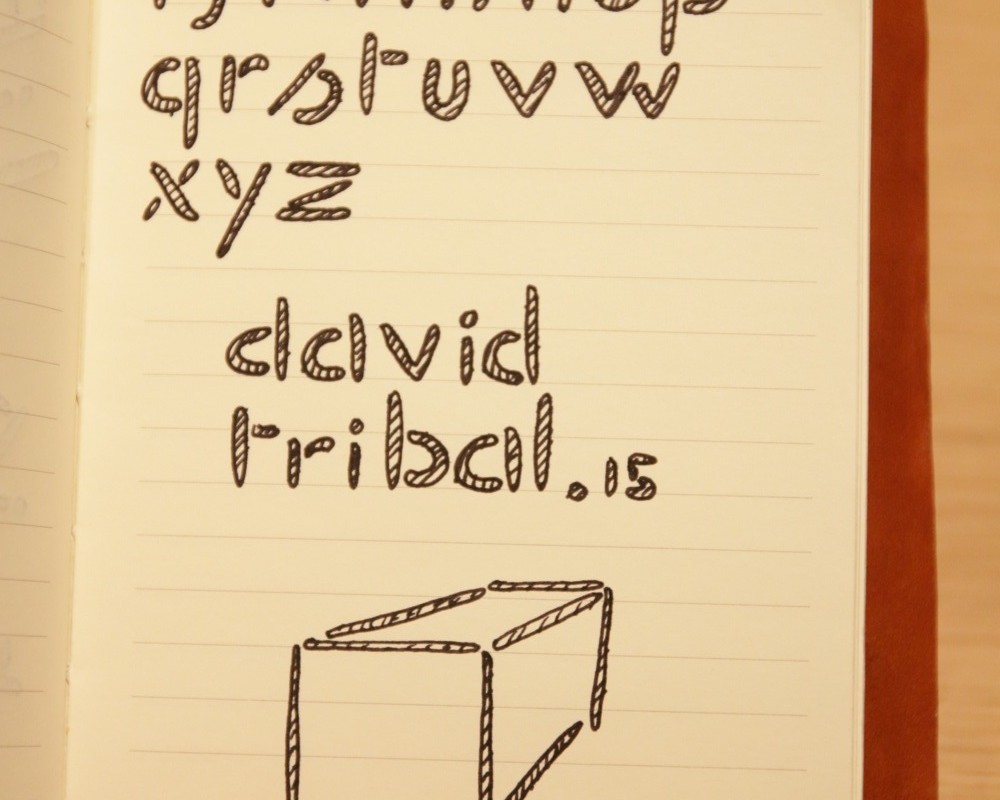 qrstuvw
xyz
david
tribal.15